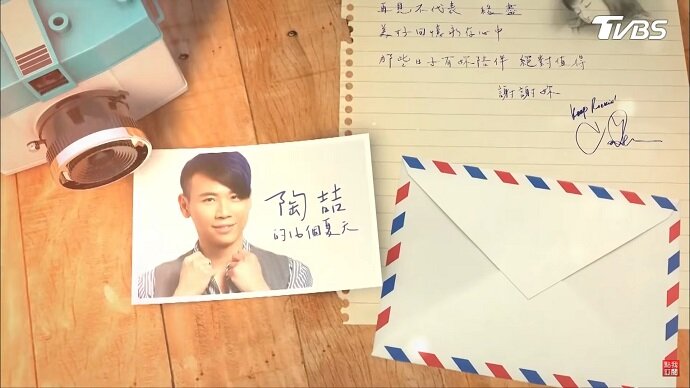 再見不代表 結盡
美好回憶永存心中
那些日子有妳陪伴 絕對值得
謝謝妳
TVBS
陶喆
的16個夏天
點我
訂閱